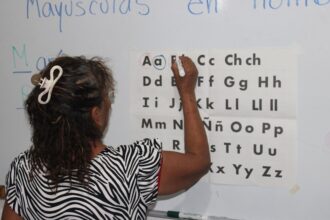 Mayúsculas en nom
Ma
Aa B Cc Chch
Dd Ff Gg Hh
Ii J Kk Ll Llll
Mm N Ññ Oo Pp
R Ss Tt Uu
Xx Yy Zz